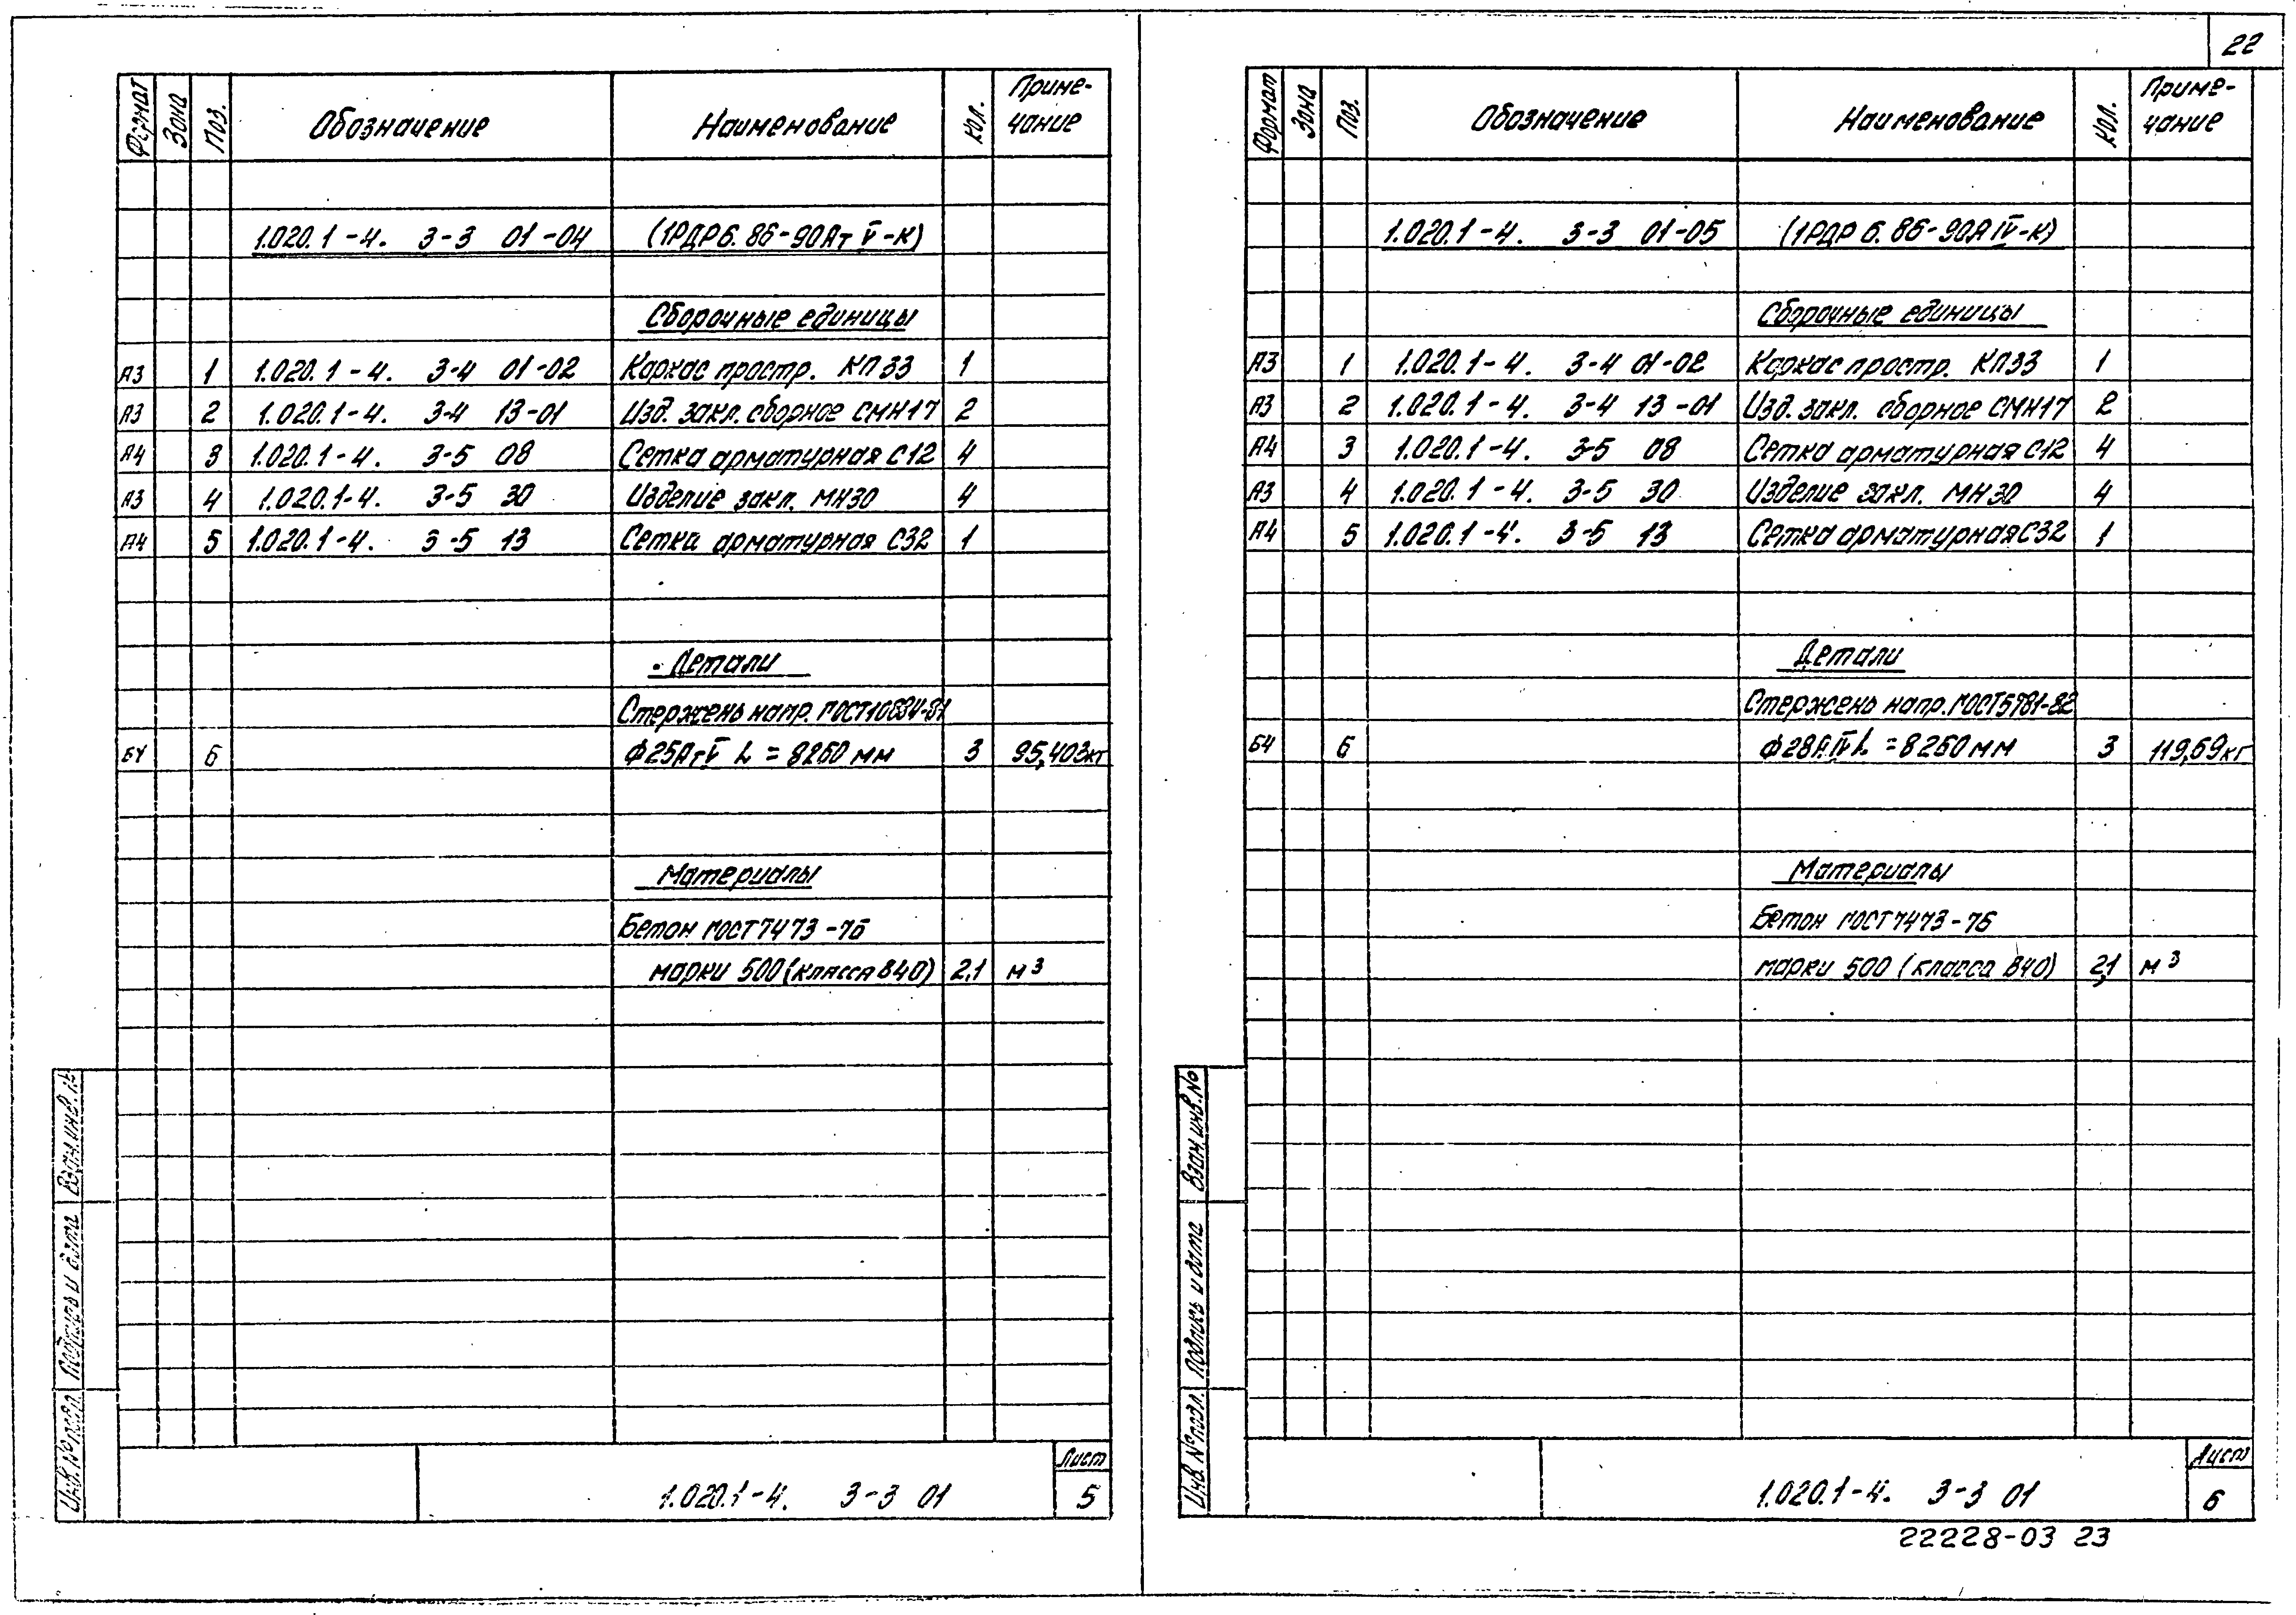 22
Формат Зона Поз. Обозначение Наименование Кол. Приме-
чание
1.020.1-4. 3-3 01-04 (1РДР6.86-90Ат V-К)
Сборочные единицы
А3 1 1.020.1-4. 3-4 01-02 Каркас простр. КП33 1
А3 2 1.020.1-4. 3-4 13-01 Изд. закл. сборное СМН17 2
А4 3 1.020.1-4. 3-5 08 Сетка арматурная С12 4
А3 4 1.020.1-4. 3-5 30 Изделие закл. МН30 4
А4 5 1.020.1-4. 3-5 13 Сетка арматурная С32 1
Детали
Стержень напр. ГОСТ10884-81
БЧ 6 Ф25АтV L=8260мм 3 95,403кг
Материалы
Бетон ГОСТ7473-76
марки 500 (класса В40) 2,1 м3
Взам.инв.№
Подпись и дата
Инв.№подл.
1.020.1-4. 3-3 01
Лист
5
Формат Зона Поз. Обозначение Наименование Кол. Приме-
чание
1.020.1-4. 3-3 01-05 (1РДР6.86-90АIV-К)
Сборочные единицы
А3 1 1.020.1-4. 3-4 01-02 Каркас простр. КП33 1
А3 2 1.020.1-4. 3-4 13-01 Изд. закл. сборное СМН17 2
А4 3 1.020.1-4. 3-5 08 Сетка арматурная С12 4
А3 4 1.020.1-4. 3-5 30 Изделие закл. МН30 4
А4 5 1.020.1-4. 3-5 13 Сетка арматурная С32 1
Детали
Стержень напр. ГОСТ5781-82
БЧ 6 Ф28АIV L=8260мм 3 119,69кг
Материалы
Бетон ГОСТ7473-76
марки 500 (класса В40) 2,1 м3
Взам.инв.№
Подпись и дата
Инв.№подл.
1.020.1-4. 3-3 01
Лист
6
22228-03 23